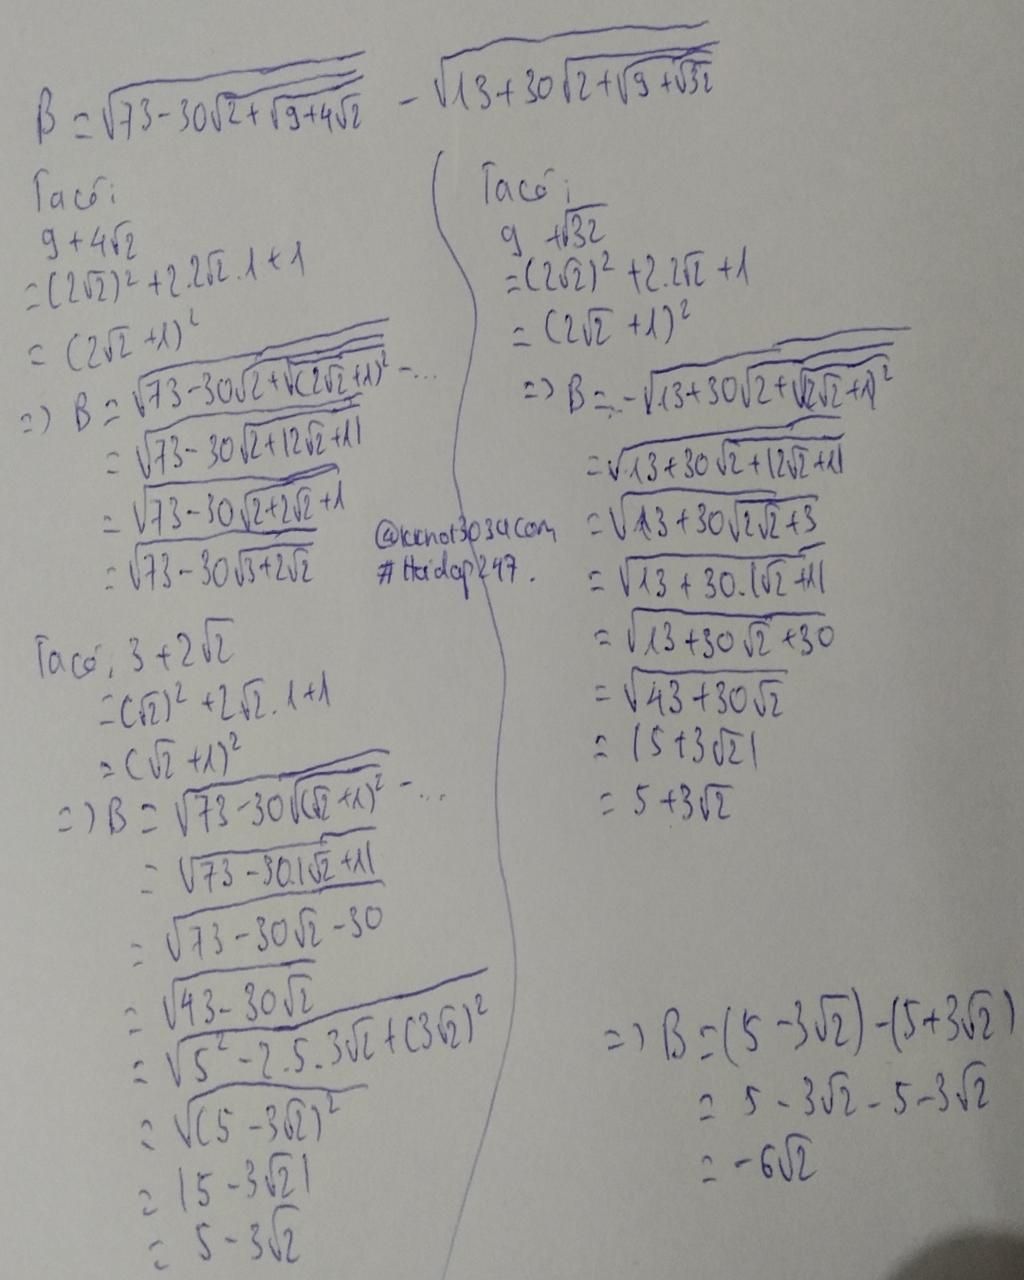 B = √(73-30√(2+√(9+4√2))) - √(13+30√(2+√(9+√32)))
Ta có:
9+4√2
=(2√2)²+2.2√2.1+1
= (2√2+1)²
=> B = √(73-30√(2+√((2√2+1)²))) -...
= √(73-30√(2+|2√2+1|))
= √(73-30√(2+2√2+1))
= √(73-30√(3+2√2))
Ta có, 3+2√2
=(√2)²+2√2.1+1
= (√2+1)²
=> B = √(73-30√((√2+1)²)) -...
= √(73-30.|√2+1|)
= √(73-30√2-30)
= √(43-30√2)
= √(5²-2.5.3√2+(3√2)²)
= √((5-3√2)²)
= |5-3√2|
= 5-3√2
Ta có;
9+√32
=(2√2)²+2.2√2+1
= (2√2+1)²
=> B =..-√(13+30√(2+√((2√2+1)²)))
=√(13+30√(2+|2√2+1|))
=√(13+30√(2√2+3))
= √(13+30.|√2+1|)
= √(13+30√2+30)
= √(43+30√2)
= |5+3√2|
= 5+3√2
#Hoidap247.
=> B = (5-3√2)-(5+3√2)
= 5-3√2-5-3√2
= -6√2